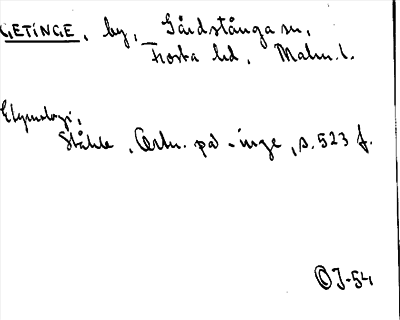 GETINGE, by, Gårdstånga sn,
Frosta hd, Malm. l.
Etymologi,
Ståhle, Ortn. på -inge, s. 523 f.
OJ-54